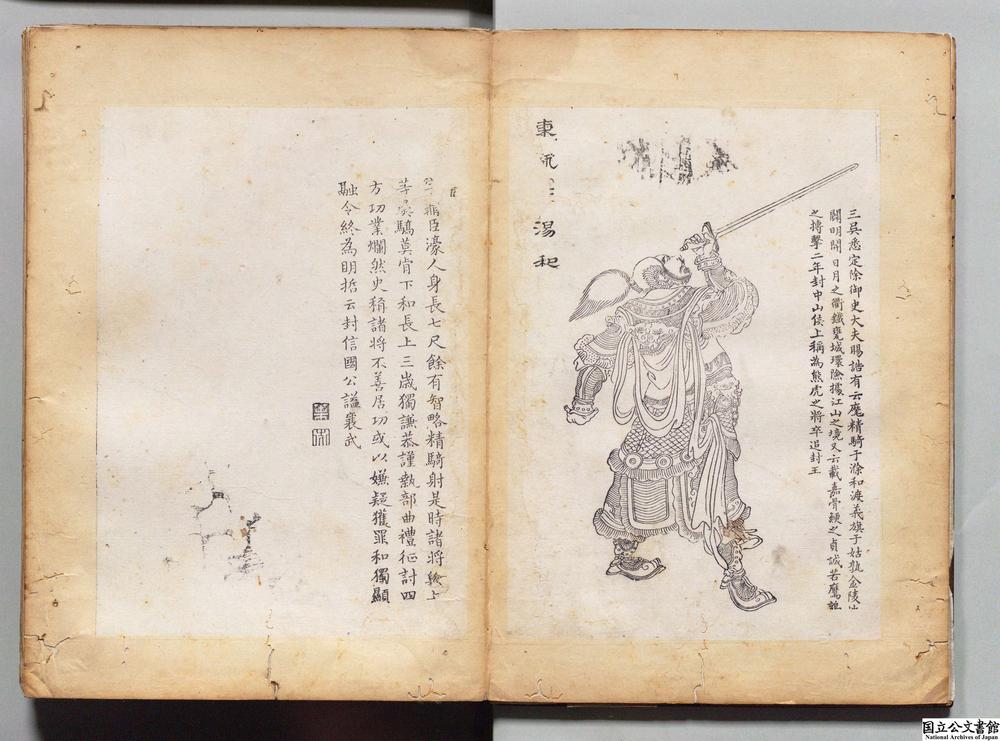 三吳悉定除御史大夫賜誥有云麾精騎于滁和渡義旗于姑孰金陵
關明開日月之衢鐵甕城環險據江山之境又云載嘉骨鯁之貞誠若鷹
之搏擊二年封中山侯上稱為熊虎之將卒追封王
東甌王湯和
臣濠人身長七尺餘有智略精騎射是時諸將
莫肯下和長上三歲獨謙恭謹執部曲禮征討四
方功業爛然史稱諸將不善居功或以嫌疑獲罪和獨顯
融令終為明哲云封信國公謚襄武
国立公文書館
National Archives of Japan